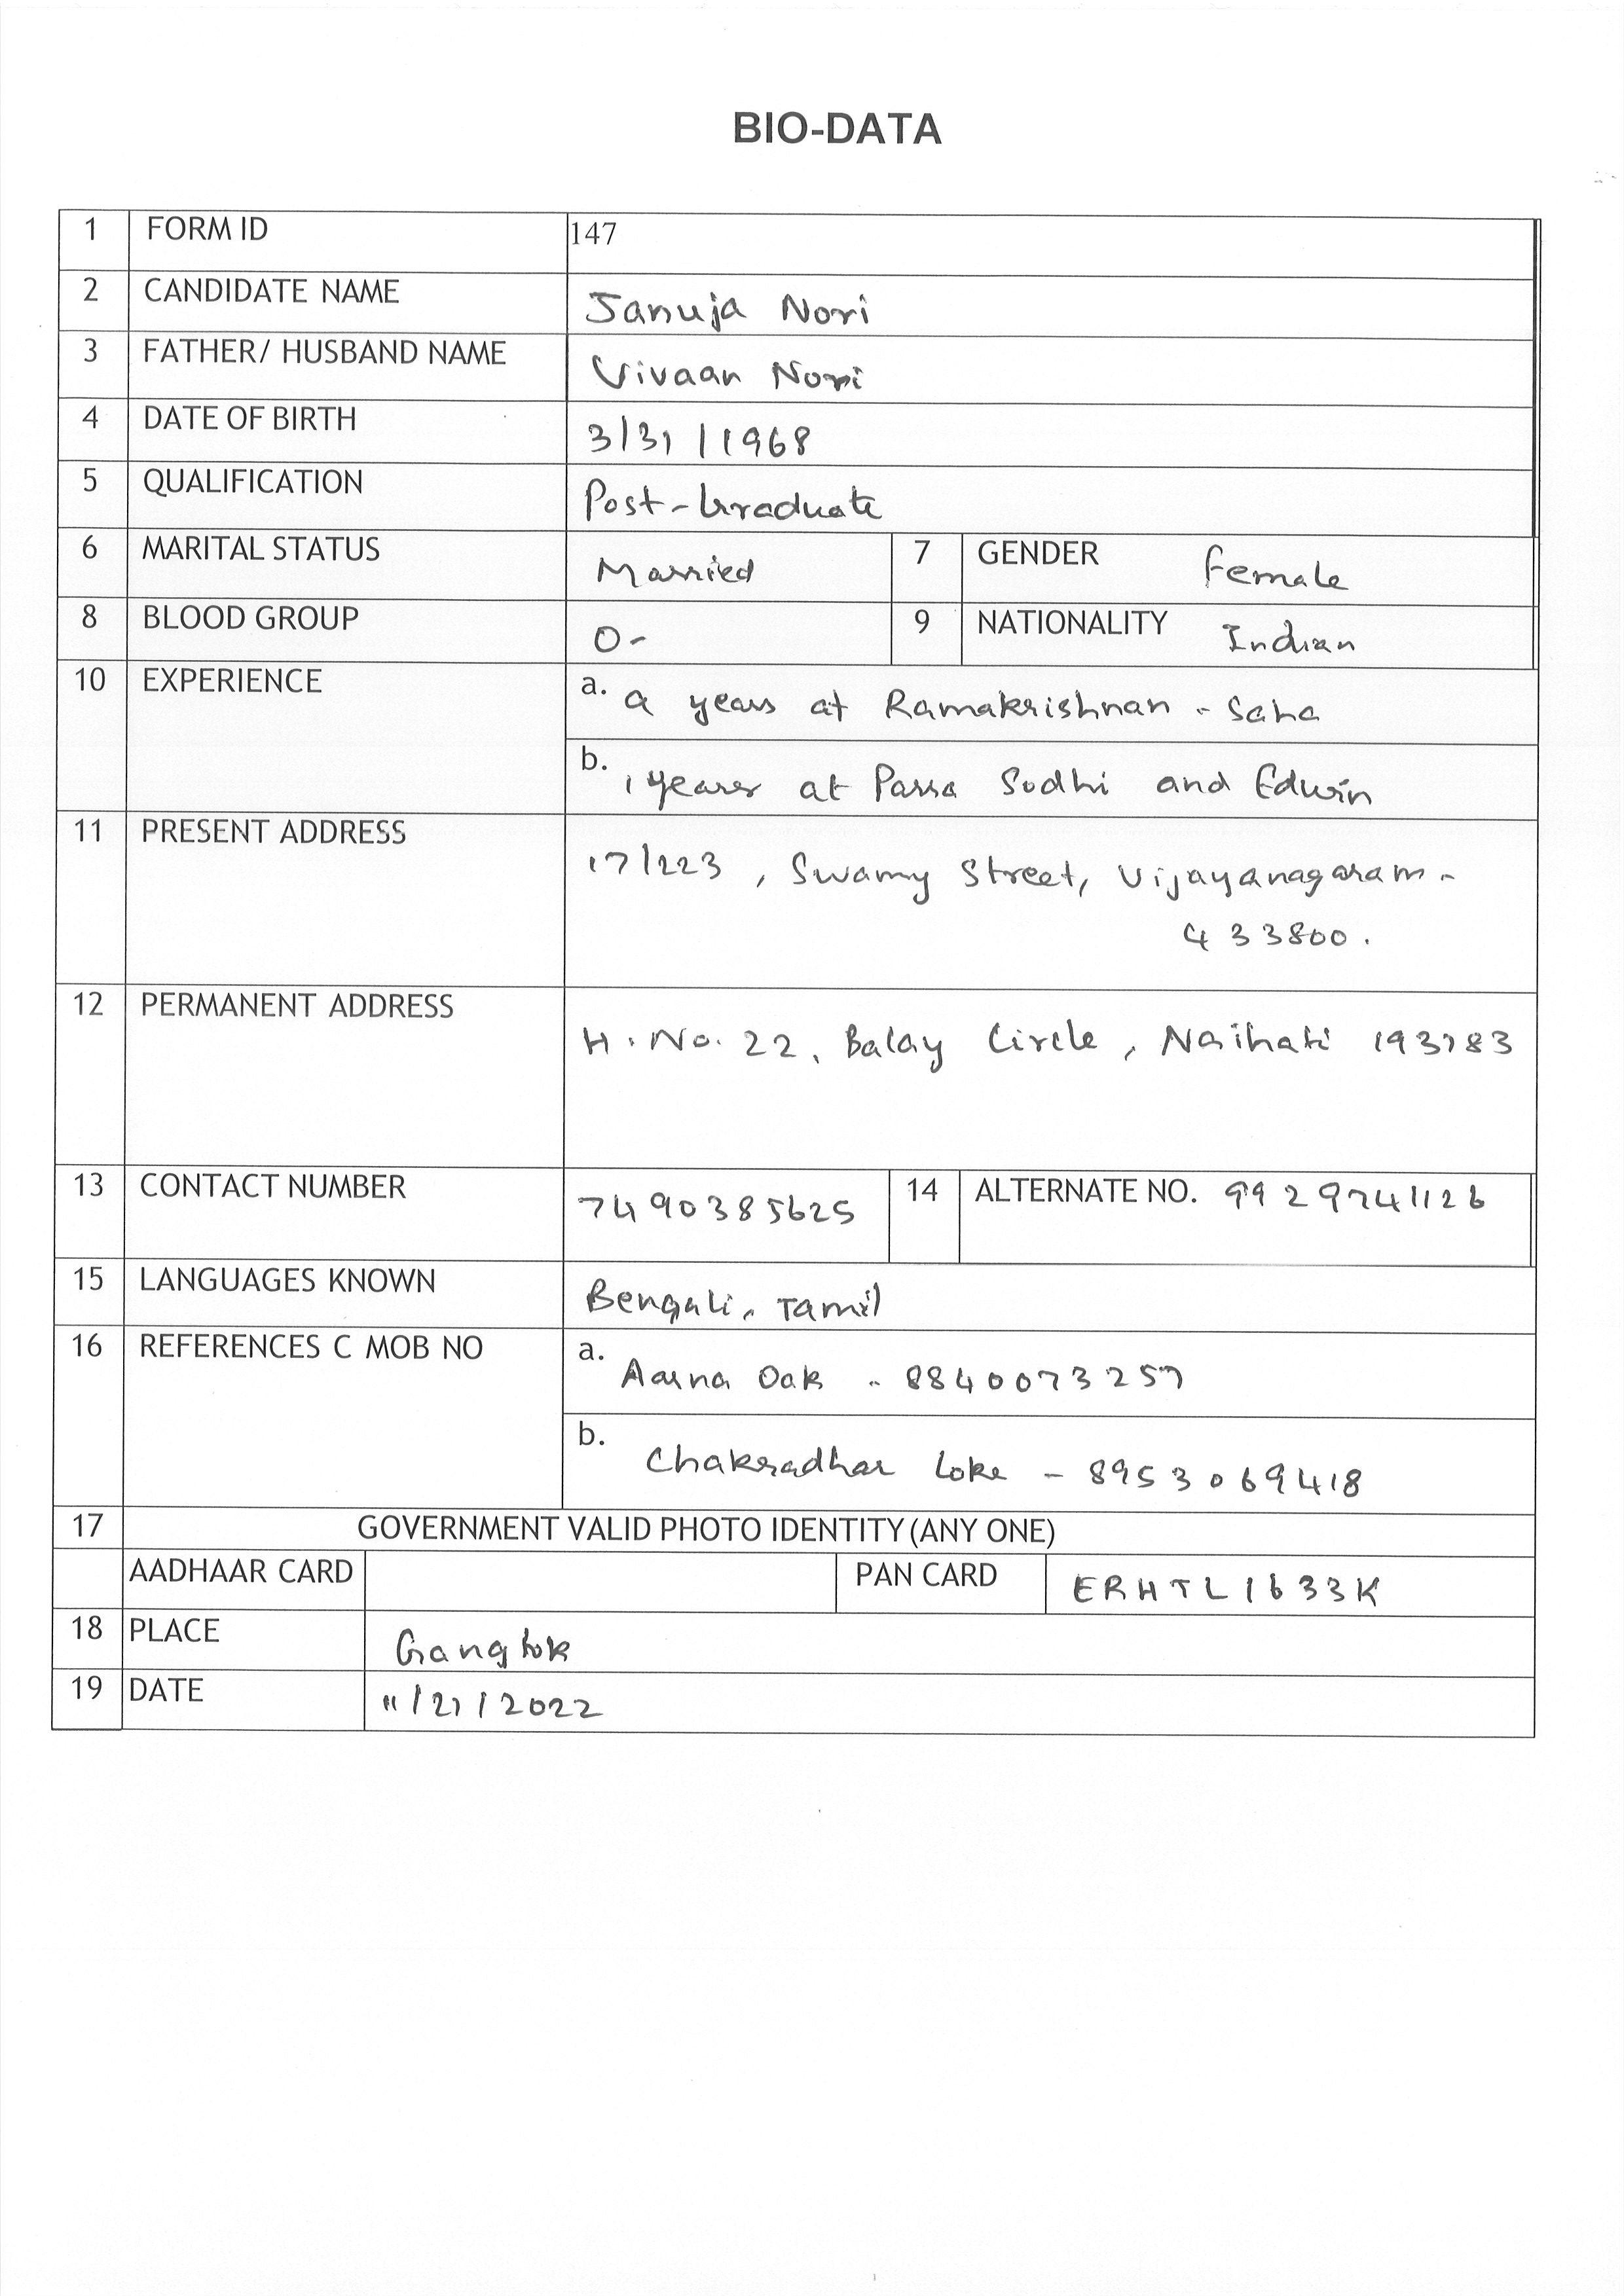 BIO-DATA
1 FORM ID 147
2 CANDIDATE NAME Januja Nori
3 FATHER/ HUSBAND NAME Vivaan Nori
4 DATE OF BIRTH 3/31/1968
5 QUALIFICATION Post-Graduate
6 MARITAL STATUS Married 7 GENDER Female
8 BLOOD GROUP O- 9 NATIONALITY Indian
10 EXPERIENCE a. 9 years at Ramakrishnan - Saha
b. 1 years at Parsa Sodhi and Edwin
11 PRESENT ADDRESS 17/223, Swamy Street, Vijayanagaram -
433800.
12 PERMANENT ADDRESS H. No. 22, Balay Circle, Naihati 193783
13 CONTACT NUMBER 7490385625 14 ALTERNATE NO. 9929741126
15 LANGUAGES KNOWN Bengali, Tamil
16 REFERENCES C MOB NO a. Aarna Oak - 8840073257
b. Chakradhar Loke - 8953069418
17 GOVERNMENT VALID PHOTO IDENTITY (ANY ONE)
AADHAAR CARD PAN CARD ERHTL1633K
18 PLACE Gangtok
19 DATE 11/21/2022